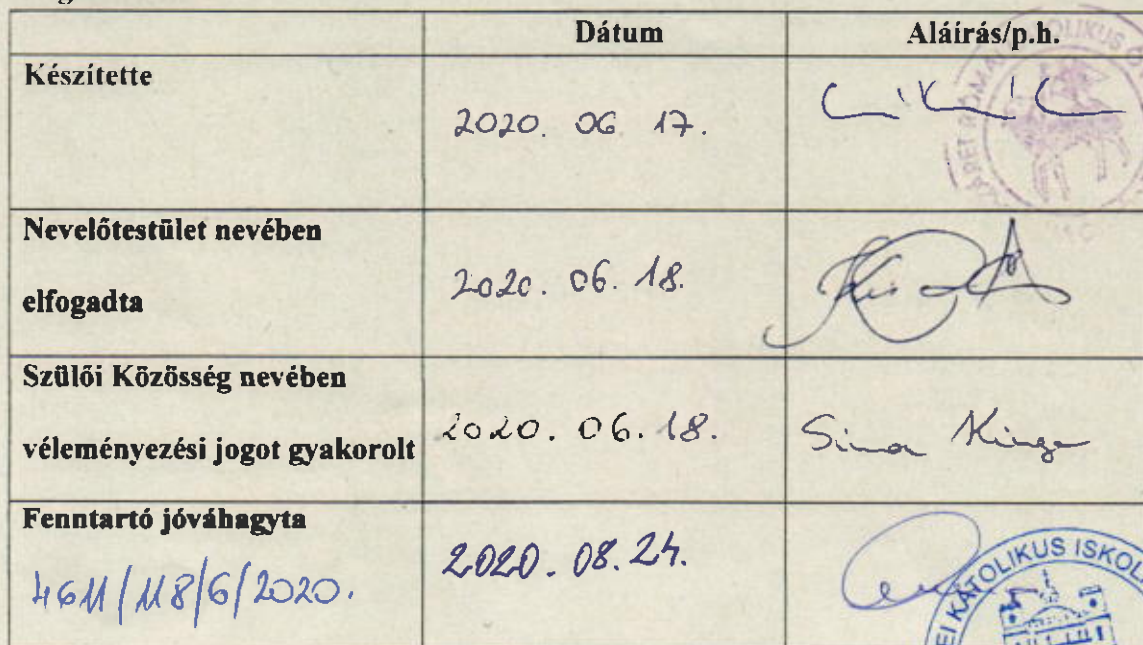 Dátum
Aláírás/p.h.
Készítette
2020. 06 17.
RÓMAI KATOLIKUS
Nevelőtestület nevében
elfogadta
2020. 06. 18.
Szülői Közösség nevében
véleményezési jogot gyakorolt
2020. 06. 18.
Sima Kinga
Fenntartó jóváhagyta
4611/118/6/2020.
2020. 08. 24.
KATOLIKUS ISKOL